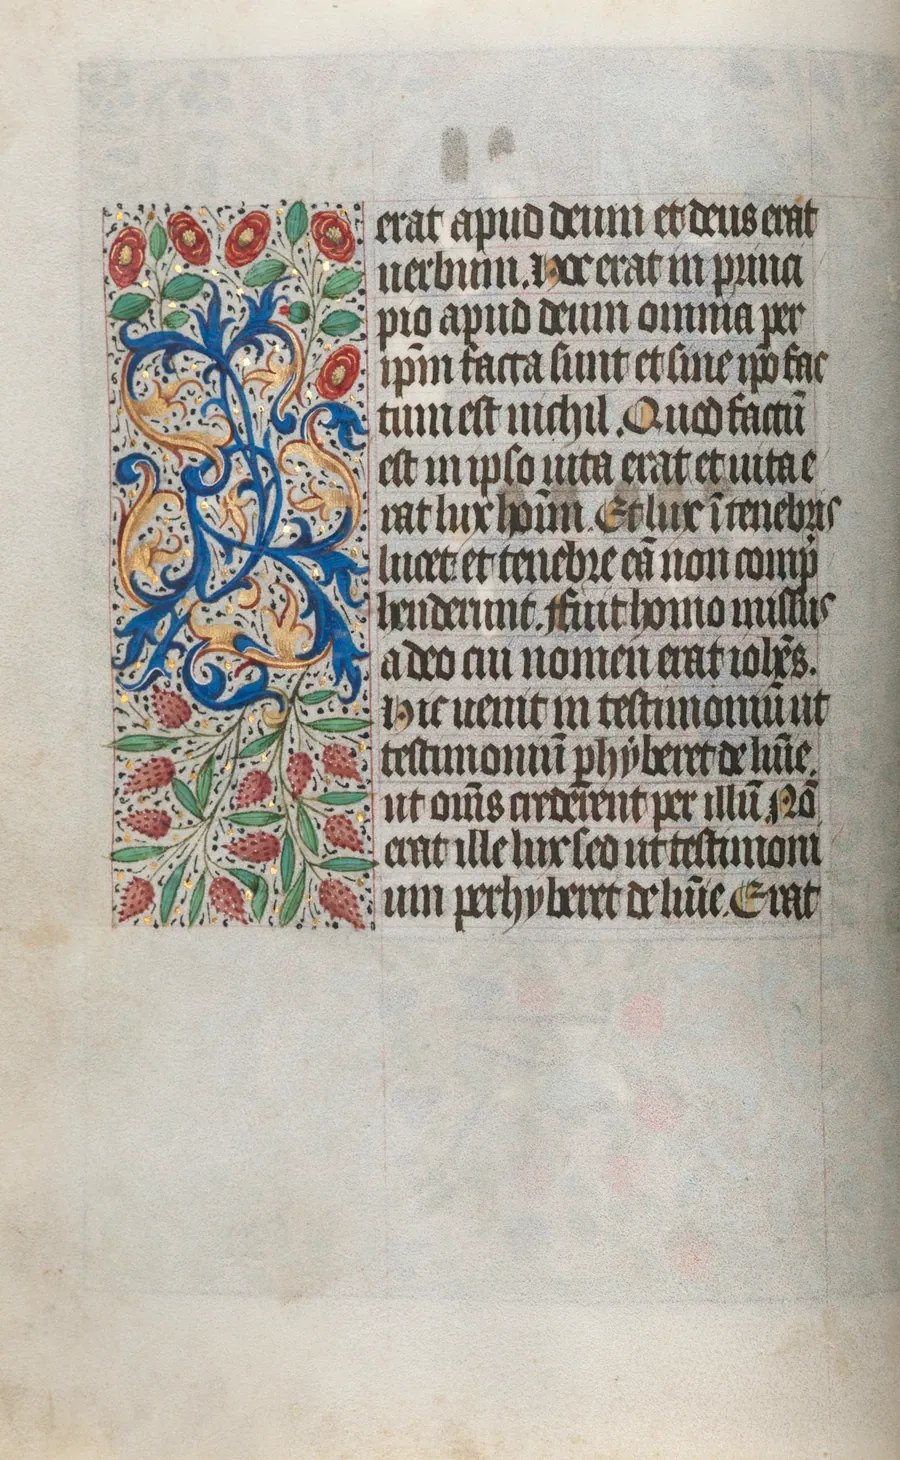 erat apud deum et deus erat
uerbum. Hoc erat in princi
pio apud deum omnia per
ip̄m facta sunt et sine ip̄o fac
tum est nichil. Quod factū
est in ipso uita erat et uita e
rat lux hoīm. Et lux ī tenebris
lucet et tenebre eā non comp̄
henderunt. Fuit homo missus
a deo cui nomen erat ioh̄es.
Hic uenit in testimoniū ut
testimoniū phȳberet de lūīe.
ut om̄s crederent per illū Nō
erat ille lux sed ut testimoni
um perhyberet de lūīe. Erat